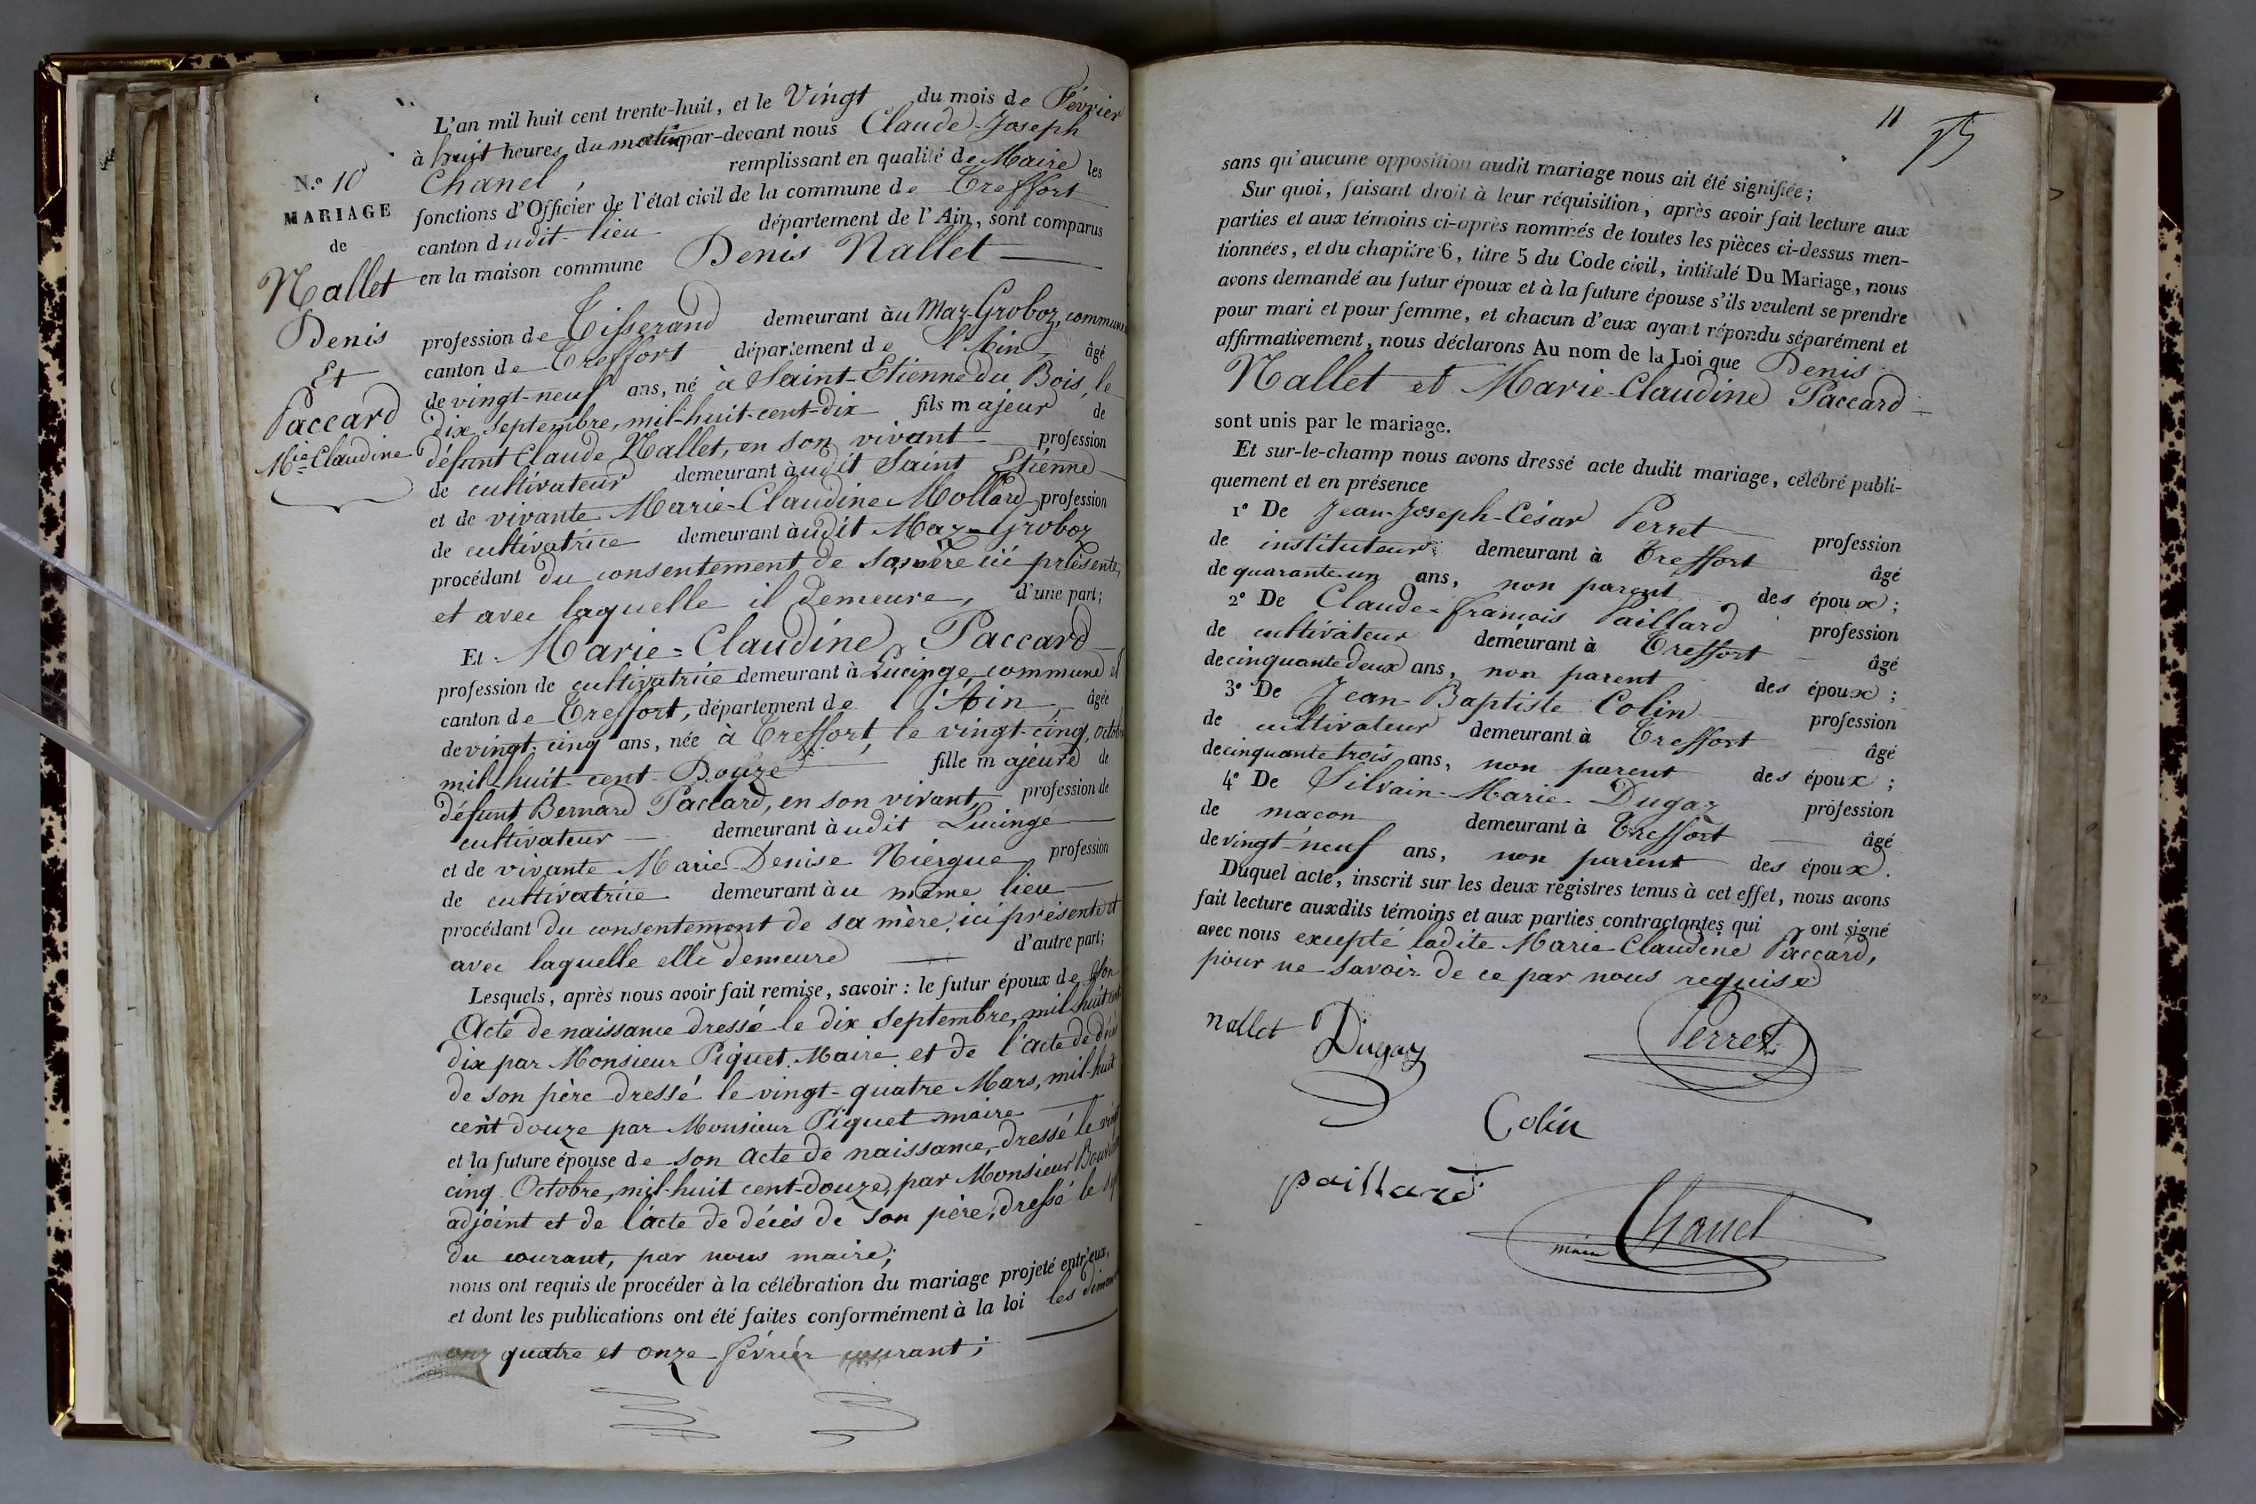 L'an mil huit cent trente-huit, et le Vingt du mois de Février
à huit heures du matin par-devant nous Claude-Joseph
Chanel, remplissant en qualité de Maire les
fonctions d'Officier de l'état civil de la commune de Treffort
canton dudit lieu département de l'Ain, sont comparus
en la maison commune Denis Nallet
N.º 10
MARIAGE
de
Nallet
Denis
Et
Paccard
Mie Claudine
profession de Tisserand demeurant àu Maz-Groboz, commune
canton de Treffort département de l'Ain, âgé
de vingt-neuf ans, né à Saint-Etienne du Bois, le
dix septembre, mil-huit-cent-dix fils majeur de
défunt Claude Nallet, en son vivant profession
de cultivateur demeurant àudit Saint Etienne
et de vivante Marie-Claudine Mollard profession
de cultivatrice demeurant àudit Maz-Groboz
procédant du consentement de sa mère ici présente,
et avec laquelle il demeure, d'une part;
Et Marie-Claudine Paccard
profession de cultivatrice demeurant à Lucinge, commune et
canton de Treffort, département de l'Ain, âgée
de vingt-cinq ans, née à Treffort, le vingt-cinq, octobre
mil-huit-cent-Douze fille majeure de
défunt Bernard Paccard, en son vivant, profession de
cultivateur demeurant àudit Lucinge
et de vivante Marie Denise Niergue profession
de cultivatrice demeurant àu même lieu
procédant du consentement de sa mère, ici présente et
avec laquelle elle demeure d'autre part;
Lesquels, après nous avoir fait remise, savoir: le futur époux de son
Acte de naissance dressé le dix Septembre, mil-huit cent
dix par Monsieur Piquet Maire et de l'acte de décès
de son père dressé le vingt-quatre Mars, mil-huit
cent douze par Monsieur Piquet maire
et la future épouse de son Acte de naissance, dressé le vingt
cinq Octobre, mil-huit cent-douze, par Monsieur
adjoint et de l'acte de décès de son père, dressé le
du courant, par nous maire;
nous ont requis de procéder à la célébration du mariage projeté entr'eux,
et dont les publications ont été faites conformément à la loi les
quatre et onze février courant;
11
sans qu'aucune opposition audit mariage nous ait été signifiée;
Sur quoi, faisant droit à leur réquisition, après avoir fait lecture aux
parties et aux témoins ci-après nommés de toutes les pièces ci-dessus men-
tionnées, et du chapitre 6, titre 5 du Code civil, intitulé Du Mariage, nous
avons demandé au futur époux et à la future épouse s'ils veulent se prendre
pour mari et pour femme, et chacun d'eux ayant répondu séparément et
affirmativement, nous déclarons Au nom de la Loi que Denis
Nallet et Marie-Claudine Paccard
sont unis par le mariage.
Et sur-le-champ nous avons dressé acte dudit mariage, célébré publi-
quement et en présence
1º De Jean-Joseph-César Perret profession
de instituteur demeurant à Treffort âgé
de quarante-un ans, non parent des époux;
2º De Claude-François Paillard profession
de cultivateur demeurant à Treffort âgé
de cinquante deux ans, non parent des époux;
3º De Jean-Baptiste Colin profession
de cultivateur demeurant à Treffort âgé
de cinquante trois ans, non parent des époux;
4º De Silvain-Marie Dugaz profession
de maçon demeurant à Treffort âgé
de vingt-neuf ans, non parent des époux.
Duquel acte, inscrit sur les deux registres tenus à cet effet, nous avons
fait lecture auxdits témoins et aux parties contractantes qui ont signé
avec nous excepté ladite Marie-Claudine Paccard,
pour ne savoir de ce par nous requise
nallet Dugaz Perret
Colin
paillard
maire Chanel